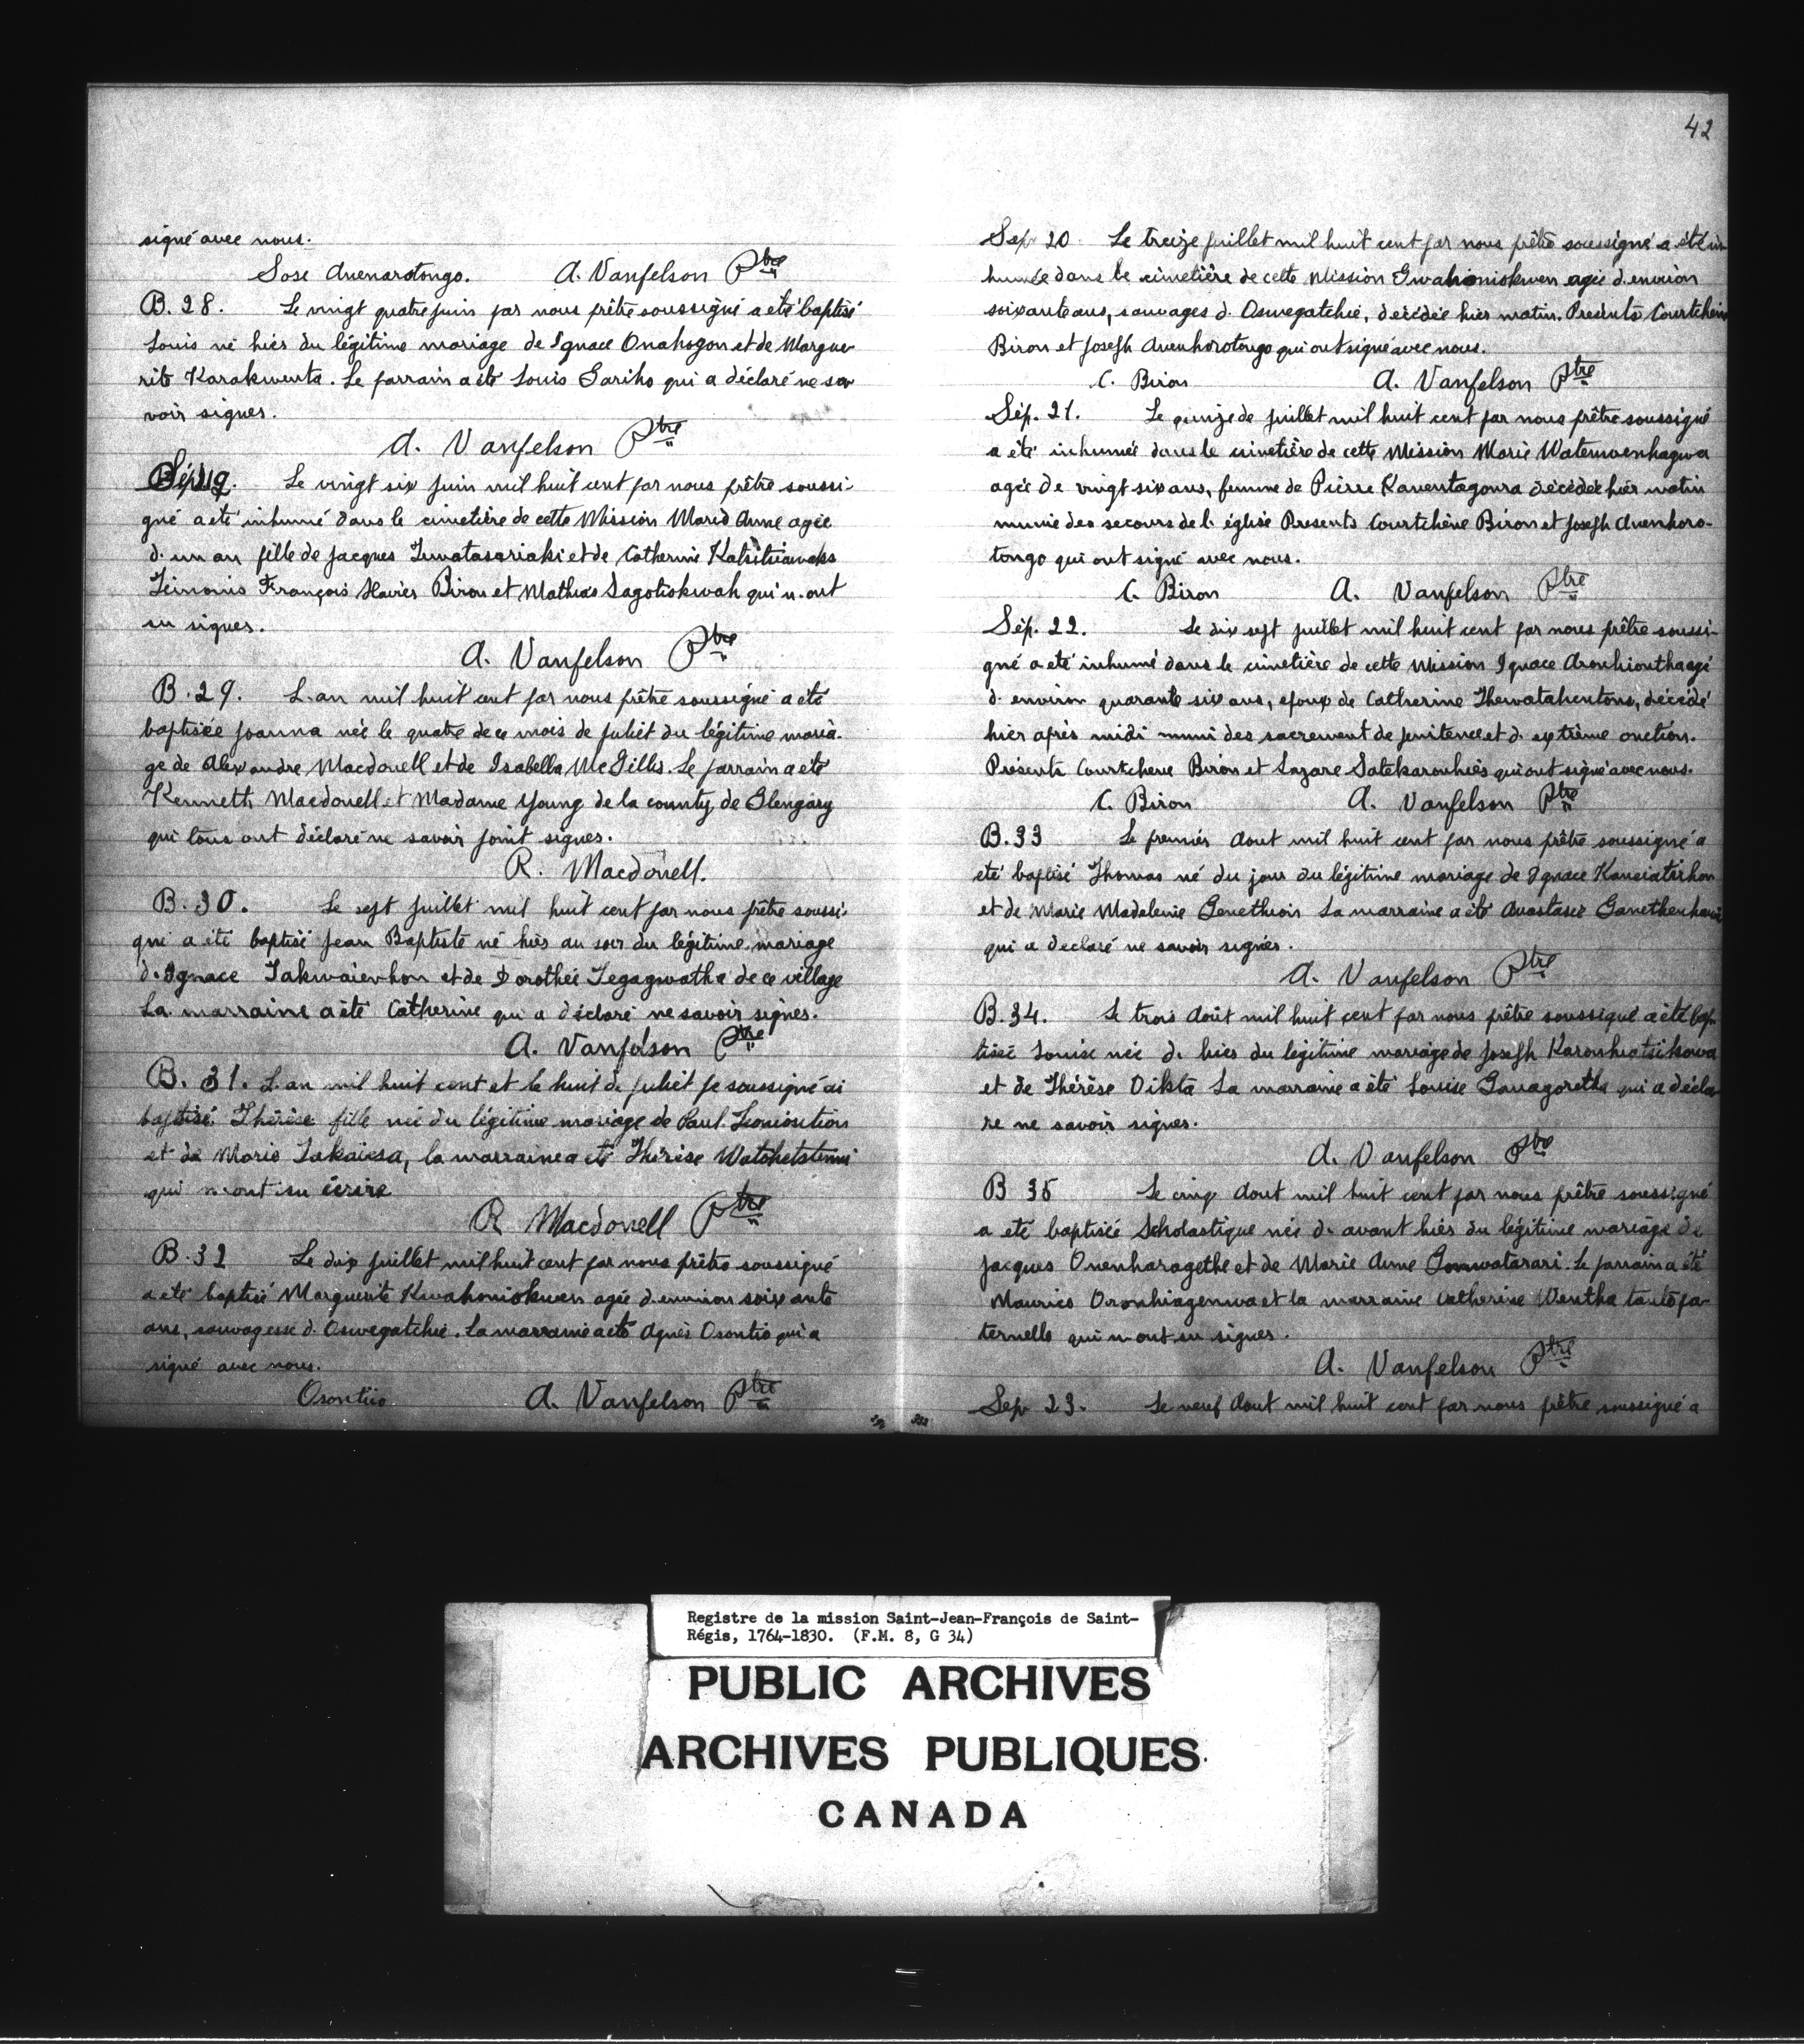 signé avec nous.
Sose Auenarotongo. A. Vanfelson Ptre
B. 28. Le vingt quatre juin par nous prêtre soussigné a été baptisé
Louis né hier du légitime mariage de Ignace Onahogon et de Margue-
rite Karakwenta. Le parrain a été Louis Sariho qui a déclaré ne sa
voir signer.
A. Vanfelson Ptre
Sép. 19. Le vingt six juin mil huit cent par nous prêtre soussi-
gné a été inhumé dans le cimetière de cette Mission Marie Anne agée
d'un an fille de Jacques et de Catherine
Témoins François Xavier Biron et Mathias Sagotiokwah qui n'ont
su signer.
A. Vanfelson Ptre
B. 29. L'an mil huit cent par nous prêtre soussigné a été
baptisée Joanna née le quatre de ce mois de juliet du légitime maria-
ge de Alexandre Macdonell et de Isabella McGillis. Le parrain a été
Kenneth Macdonell et Madame Young de la county de Glengary
qui tous ont déclaré ne savoir point signer.
R. Macdonell.
B. 30. Le sept juillet mil huit cent par nous prêtre soussi-
gné a été baptisé Jean Baptiste né hier au soir du légitime mariage
d'Ignace Takwaienhon et de Dorothée Tegagwatha de ce village
La marraine a été Catherine qui a déclaré ne savoir signer.
A. Vanfelson Ptre
B. 31. L'an mil huit cent et le huit de juliet je soussigné ai
baptisé Thérèse fille née du légitime mariage de Paul
et de Marie Takaiesa, la marraine a été Thérèse
qui n'ont su écrire
R Macdonell Ptre
B. 32 Le dix juillet mil huit cent par nous prêtre soussigné
a été baptisé Marguerite Kwahoniokwen agée d'environ soixante
ans, sauvagesse d'Oswegatchie. La marraine a été Agnès Osontio qui a
signé avec nous.
Osontiio A. Vanfelson Ptre
42
Sep 20. Le treize juillet mil huit cent par nous prêtre soussigné a été in
humée dans le cimetière de cette Mission Gwahoniokwen agée d'environ
soixante ans, sauvages d'Oswegatchie, décédée hier matin. Presents Courtchene
Biron et Joseph Auenhorotongo qui ont signé avec nous.
C. Biron A. Vanfelson Ptre
Sép. 21. Le quinze de juillet mil huit cent par nous prêtre soussigné
a été inhumée dans le cimetière de cette Mission Marie Watemwenhagwa
agée de vingt six ans, femme de Pierre Kaventagoura décédée hier matin
munie des secours de l'église Presents Courtchène Biron et Joseph Auenhoro-
tongo qui ont signé avec nous.
C. Biron A. Vanfelson Ptre
Sép. 22. Le dix sept juillet mil huit cent par nous prêtre soussi-
gné a été inhumé dans le cimetière de cette Mission Ignace Aronhiontha agé
d'environ quarante six ans, epoux de Catherine Thewatahentons, décédé
hier après midi muni des sacrement de penitence et d'extrème onction.
Présents Courtchene Biron et Lazare Satekarouhies qui ont signé avec nous.
C. Biron A. Vanfelson Ptre
B. 33 Le premier Aout mil huit cent par nous prêtre soussigné a
été baptisé Thomas né du jour du légitime mariage de Ignace
et de Marie Madeleine La marraine a été Anastasie
qui a declaré ne savoir signer.
A. Vanfelson Ptre
B. 34. Le trois Août mil huit cent par nous prêtre soussigné a été bap-
tisée Louise née d'hier du légitime mariage de Joseph Karonhiatsikowa
et de Thérèse Oikta La marraine a été Louise Ganagoretha qui a décla
re ne savoir signer.
A. Vanfelson Ptre
B 35 Le cinq Aout mil huit cent par nous prêtre soussigné
a été baptisée Scholastique née d'avant hier du légitime mariage de
Jacques Onenharagethe et de Marie Anne Gonwatarari. Le parrain a été
Maurice Oronhiagenwa et la marraine Catherine Wentha tante pa-
ternelle qui n'ont su signer.
A. Vanfelson Ptre
Sep 23. Le neuf Aout mil huit cent par nous prêtre soussigné a
Registre de la mission Saint-Jean-François de Saint-
Régis, 1764-1830. (F.M. 8, G 34)
PUBLIC ARCHIVES
ARCHIVES PUBLIQUES
CANADA